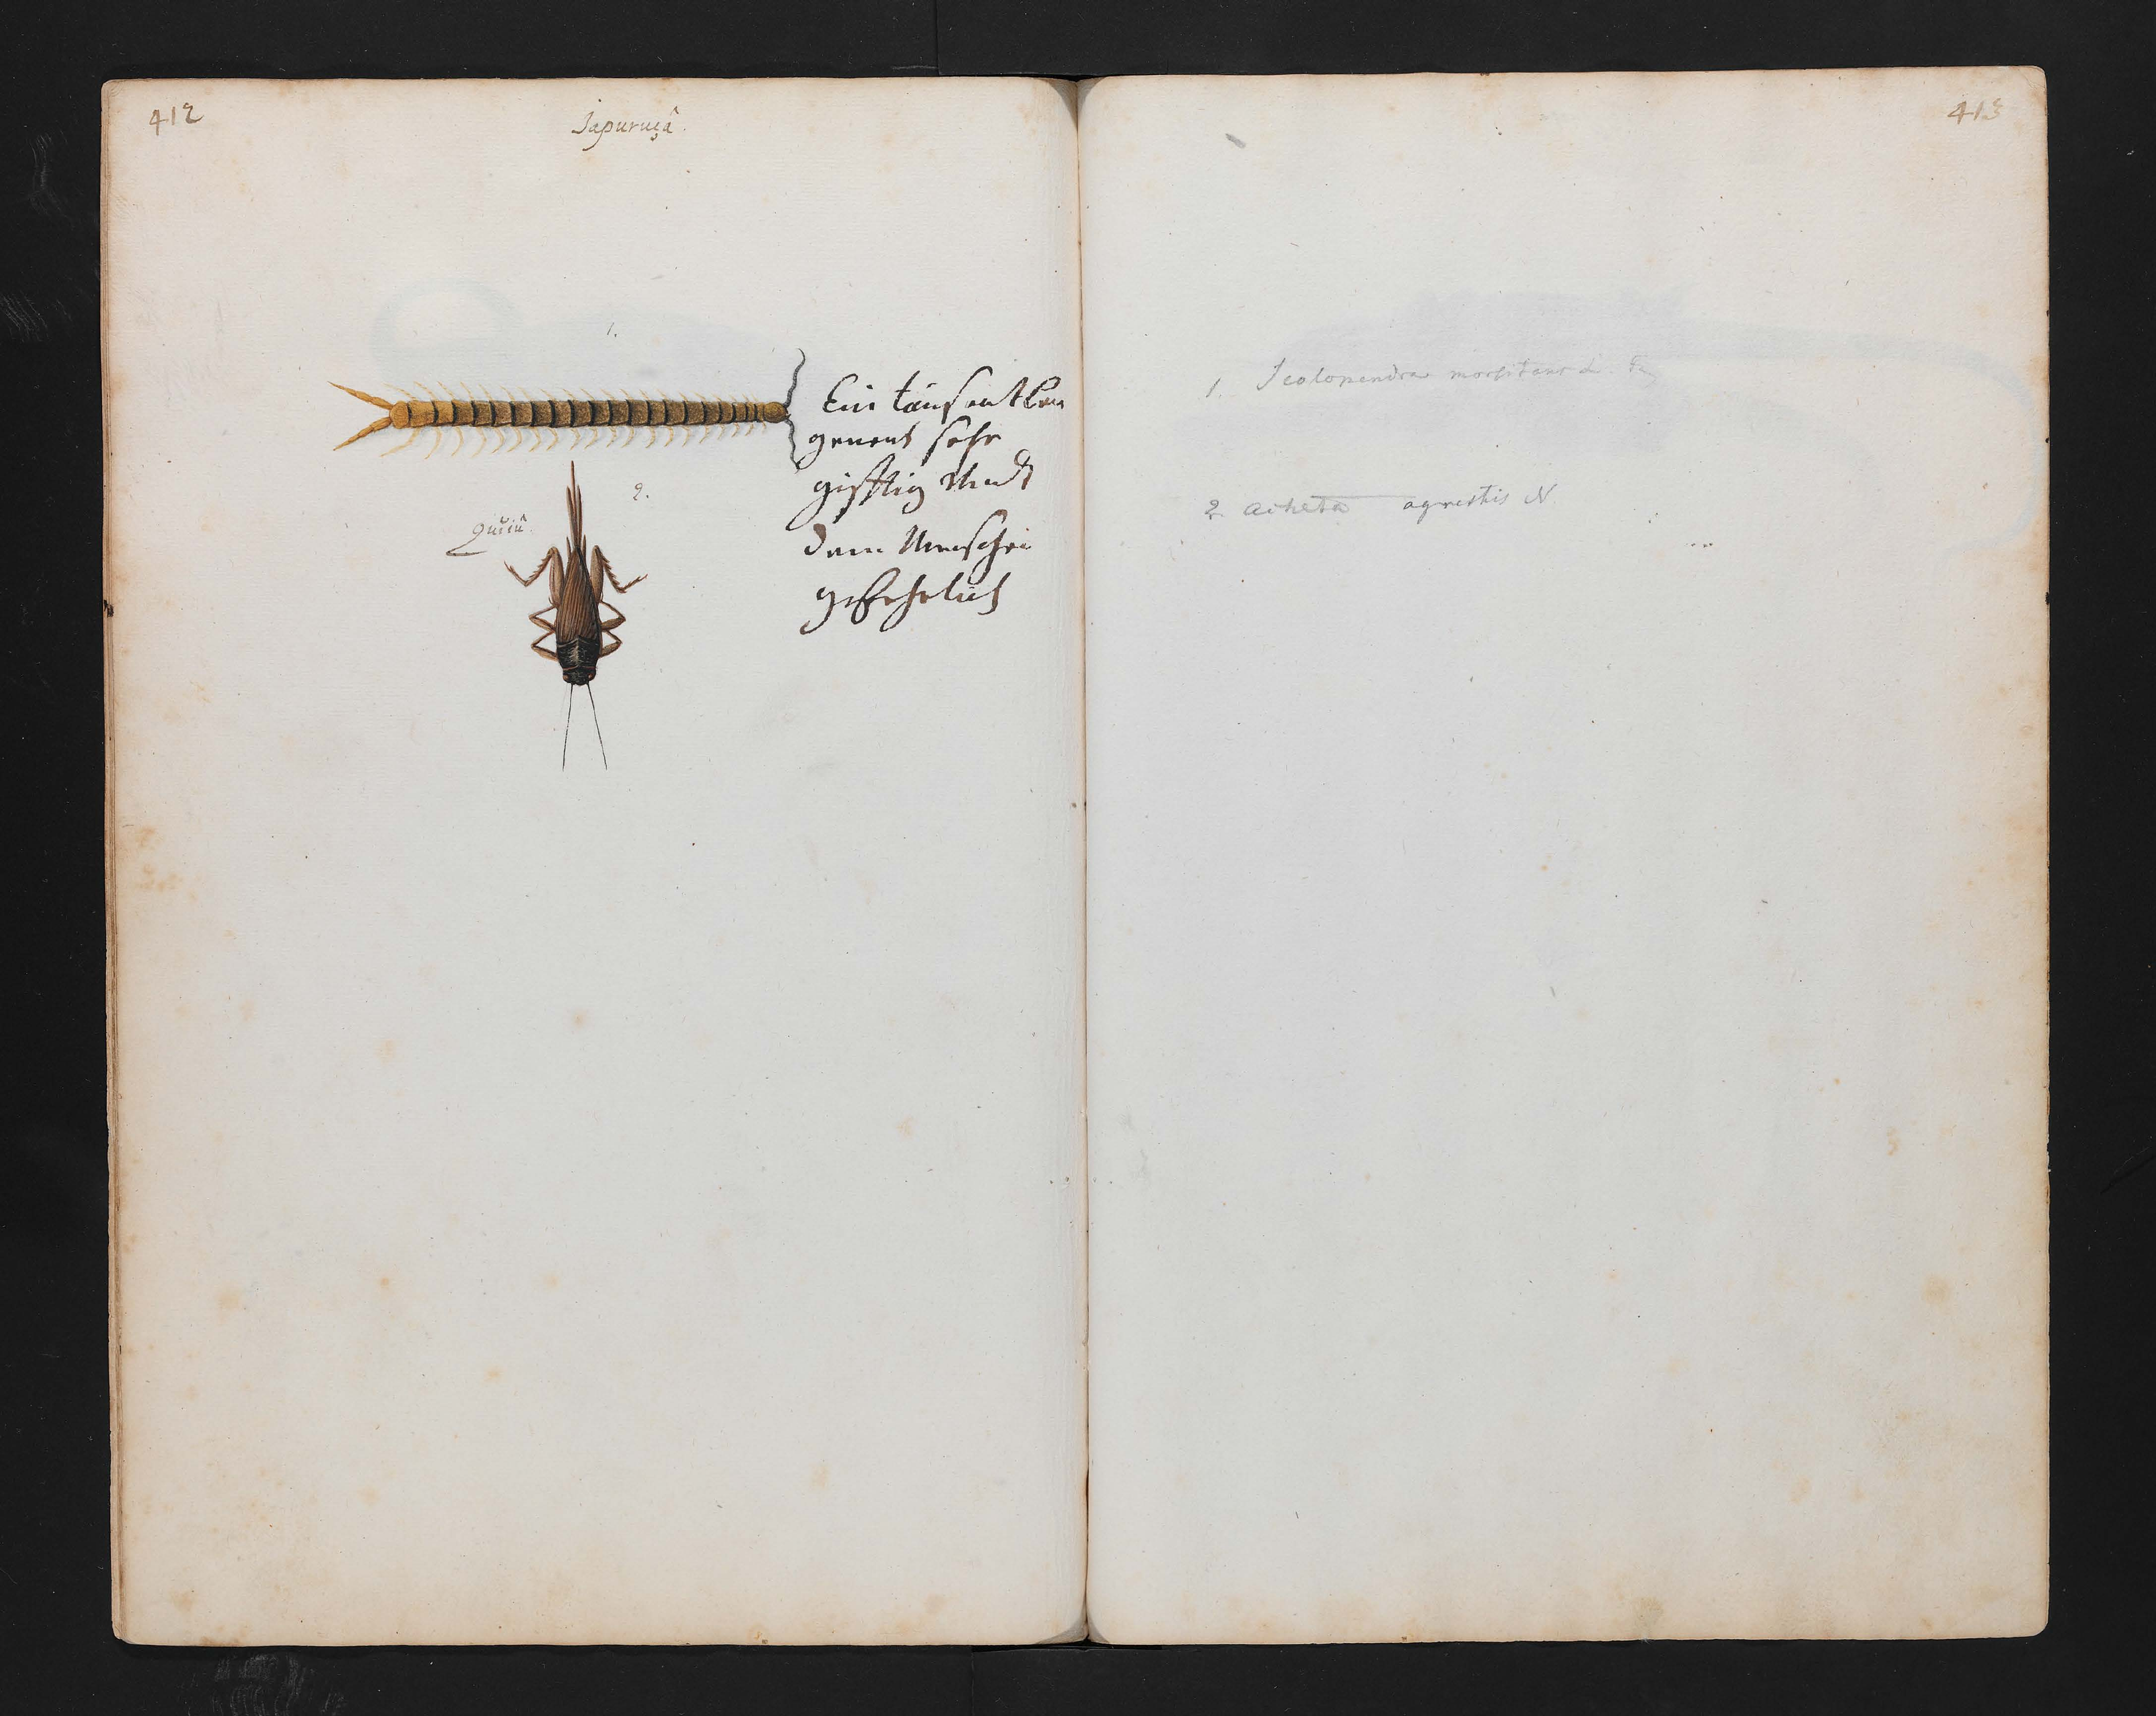 412
Iapuruçâ.
1.
Ein tausentben
genent sehr
gifftig undt
dem Menschen
gefehrlich
2.
Quiiû.
413
1. Scolopendra morsitans L.
2 acheta agrestis N